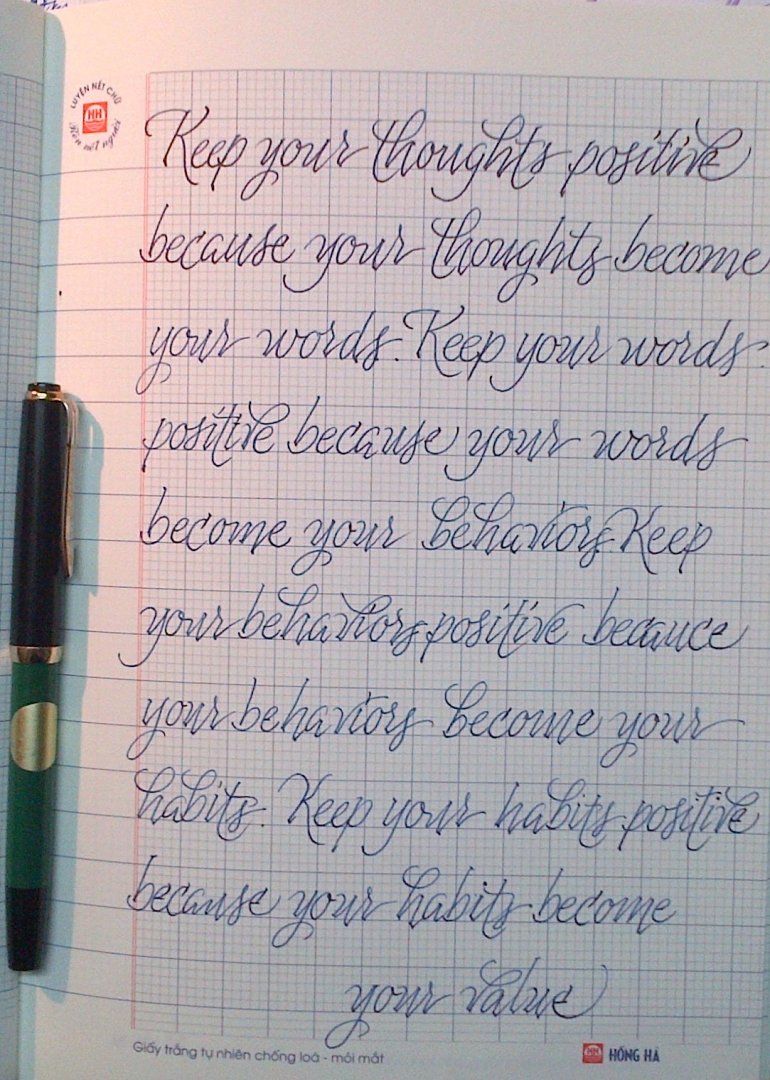 LUYỆN NÉT CHỮ
HH
Rèn nết người
Keep your thoughts positive
because your thoughts become
your words. Keep your words
positive because your words
become your behaviors. Keep
your behaviors positive becauce
your behaviors become your
habits. Keep your habits positive
because your habits become
your value
Giấy trắng tự nhiên chống loá - mỏi mắt
HH HỒNG HÀ